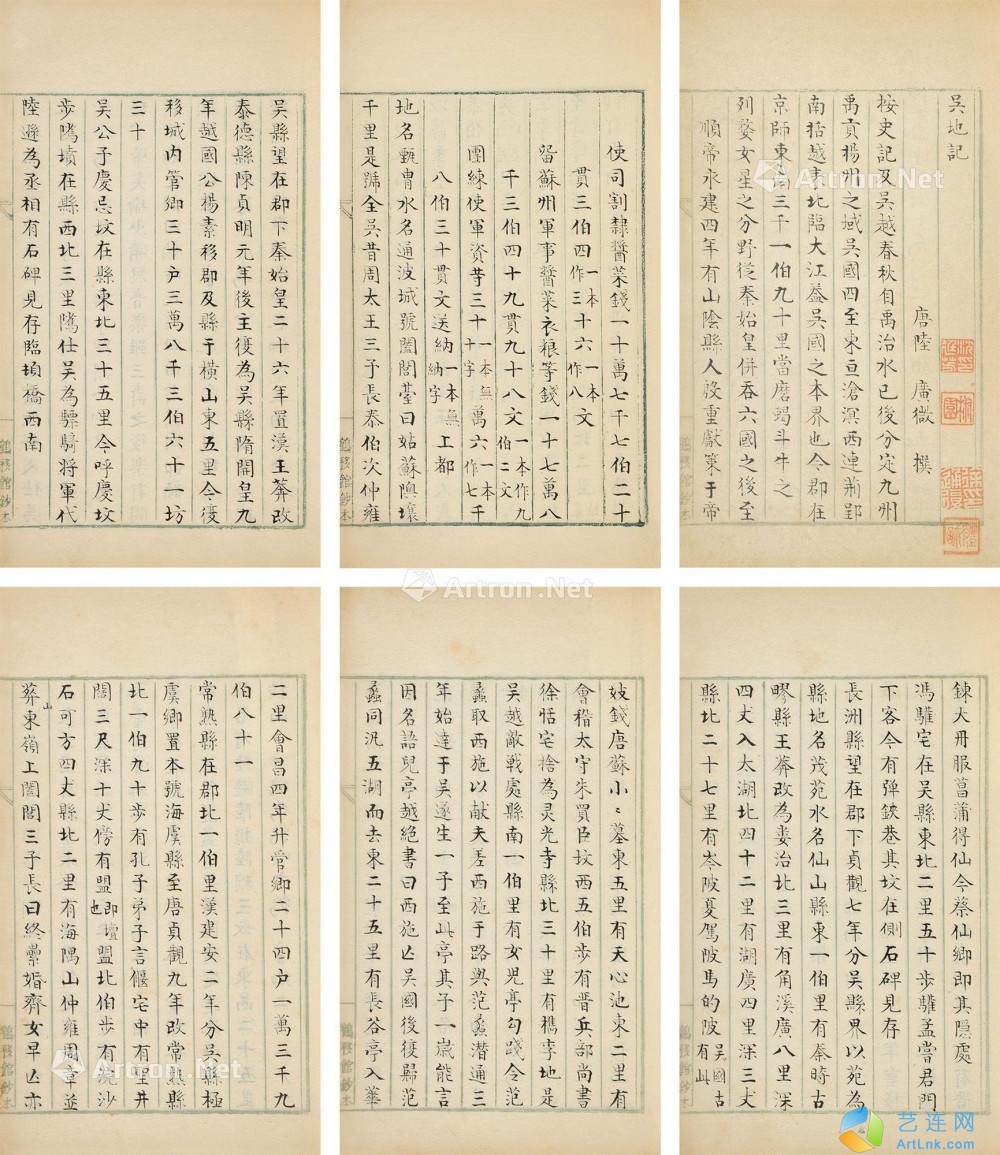 吳地記
唐陸 廣微 撰
按史記及吳越春秋自禹治水已後分定九州
禹貢揚州之域吳國四至東亘滄溟西連荊郢
南括越表北臨大江蓋吳國之本界也今郡在
京師東南三千一伯九十里當磨蝎斗牛之
列婺女星之分野從秦始皇併吞六國之後至
順帝永建四年有山陰縣人殷重獻策于帝
使司割隸醬菜錢一十萬七千七伯二十
貫三伯四一本作三十六一本作八文
留蘇州軍事醬菜衣粮等錢一十七萬八
千三伯四十九貫九十八文一本作九伯二文
團練使軍資等三十一本無十字萬六一本作七千
八伯三十貫文送納一本無納字上都
地名甄冑水名通波城號闔閭臺曰姑蘇隩壤
千里是號全吳昔周太王三子長泰伯次仲雍
吳縣望在郡下秦始皇二十六年置漢王莽改
泰德縣陳貞明元年後主復為吳縣隋開皇九
年越國公楊素移郡及縣于橫山東五里今復
移城內管鄉三十戶三萬八千三伯六十一坊
三十
吳公子慶忌坟在縣東北三十五里今呼慶坟
步騭墳在縣西北三里騭仕吳為驃騎將軍代
陸遜為丞相有石碑見存臨頓橋西南
鶴棲館鈔本
鍊大丹服菖蒲得仙今蔡仙鄉即其隱處
馮驩宅在吳縣東北二里五十步驩孟嘗君門
下客今有彈鋏巷其坟在側石碑見存
長洲縣望在郡下貞觀七年分吳縣界以苑為
縣地名茂苑水名仙山縣東一伯里有秦時古
疁縣王莽改為婁治北三里有角溪廣八里深
四丈入太湖北四十二里有湖廣四里深三丈
縣北二十七里有岑陂夏駕陂馬的陂吳國古有此
妓錢唐蘇小〻墓東五里有天心池東二里有
會稽太守朱買臣坟西五伯步有晉兵部尚書
徐恬宅捨為灵光寺縣北三十里有檇李地是
吳越敵戰處縣南一伯里有女兒亭勾踐令范
蠡取西施以献夫差西施于路與范蠡潛通三
年始達于吳遂生一子至此亭其子一歲能言
因名語兒亭越絕書曰西施亡吳國後復歸范
蠡同汎五湖而去東二十五里有長谷亭入華
二里會昌四年升管鄉二十四戶一萬三千九
伯八十一
常熟縣在郡北一伯里漢建安二年分吳縣極
虞鄉置本號海虞縣至唐貞觀九年改常熟縣
北一伯九十步有孔子弟子言偃宅中有聖井
闊三尺深十丈傍有盟即壇也盟北伯步有浣沙
石可方四丈縣北二里有海隅山仲雍周章並
葬山東嶺上闔閭三子長曰終纍婚齊女早亡亦
Artron.Net
艺连网
ArtLnk.com